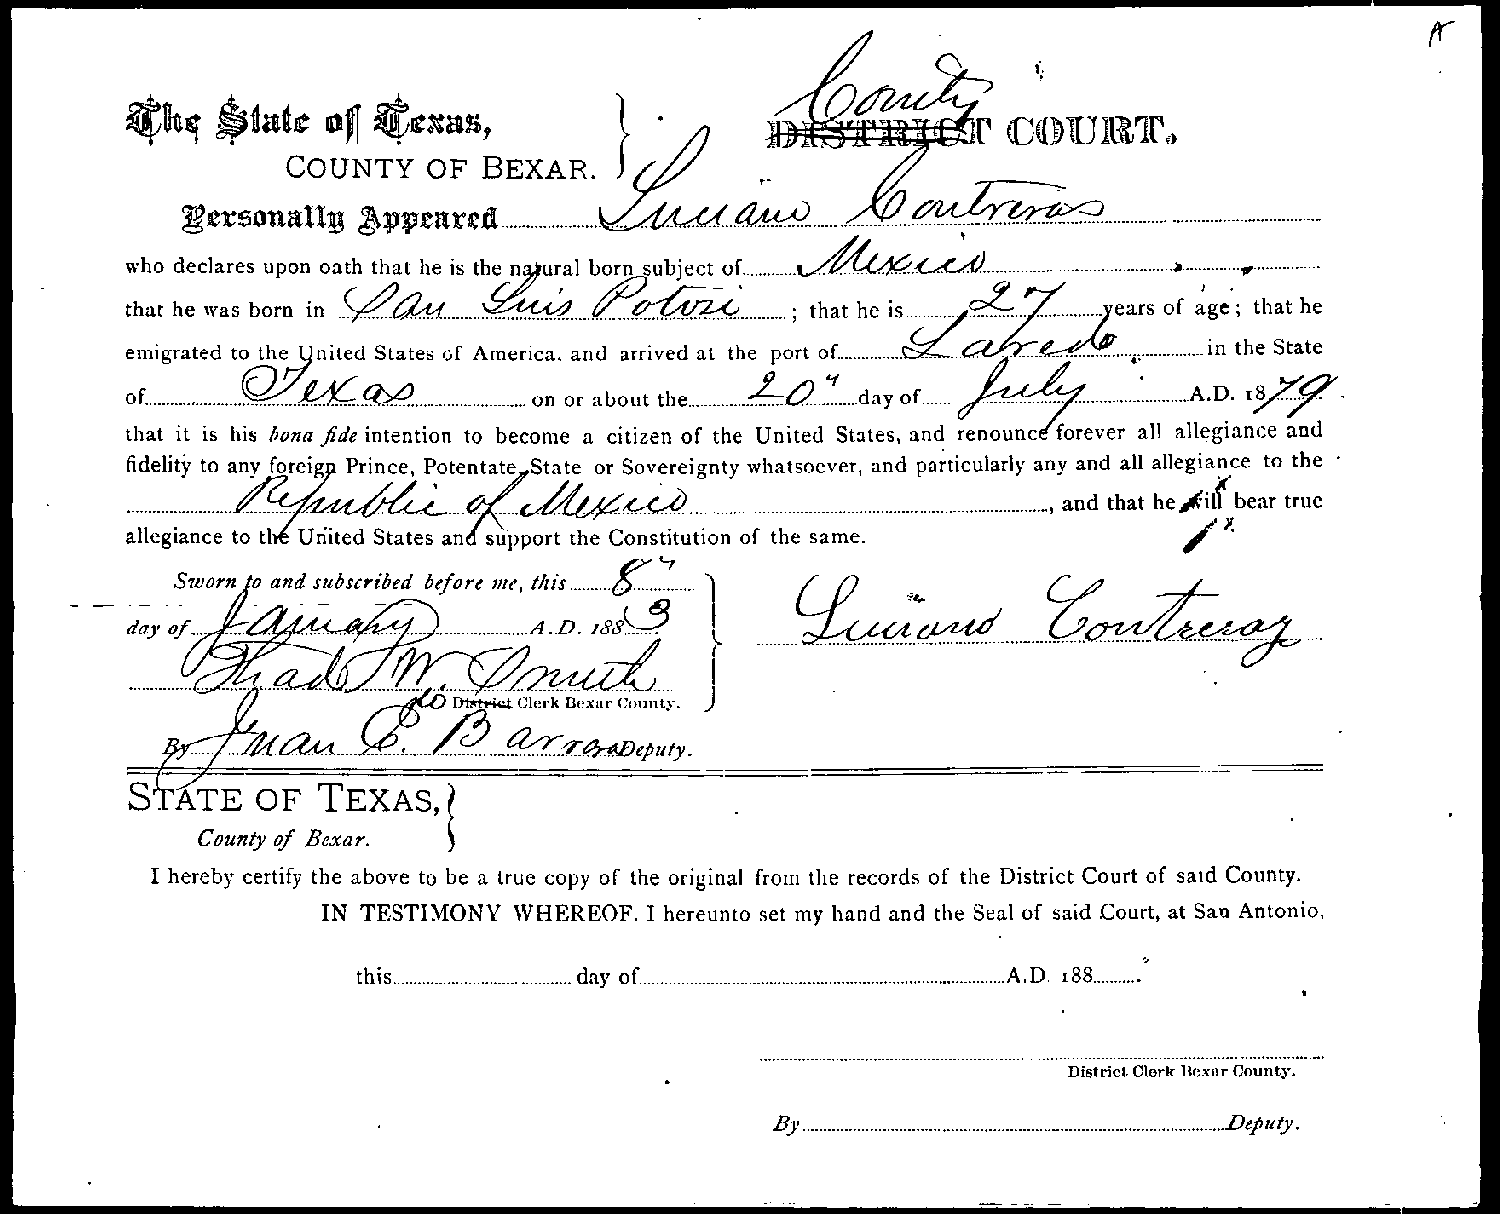 County
The State of Texas, DISTRICT COURT.
COUNTY OF BEXAR.
Personally Appeared Luciano Contreras
who declares upon oath that he is the natural born subject of Mexico
that he was born in San Luis Potosi ; that he is 27 years of age; that he
emigrated to the United States of America, and arrived at the port of Laredo, in the State
of Texas on or about the 20" day of July A.D. 1879
that it is his bona fide intention to become a citizen of the United States, and renounce forever all allegiance and
fidelity to any foreign Prince, Potentate, State or Sovereignty whatsoever, and particularly any and all allegiance to the
Republic of Mexico , and that he will bear true
allegiance to the United States and support the Constitution of the same.
Sworn to and subscribed before me, this 8"
day of January A.D. 1883 Luciano Contreraz
Thad W. Smith
Co District Clerk Bexar County.
By Juan E. Barrera Deputy.
STATE OF TEXAS,
County of Bexar.
I hereby certify the above to be a true copy of the original from the records of the District Court of said County.
IN TESTIMONY WHEREOF, I hereunto set my hand and the Seal of said Court, at San Antonio,
this day of A.D. 188
District Clerk Bexar County.
By Deputy.